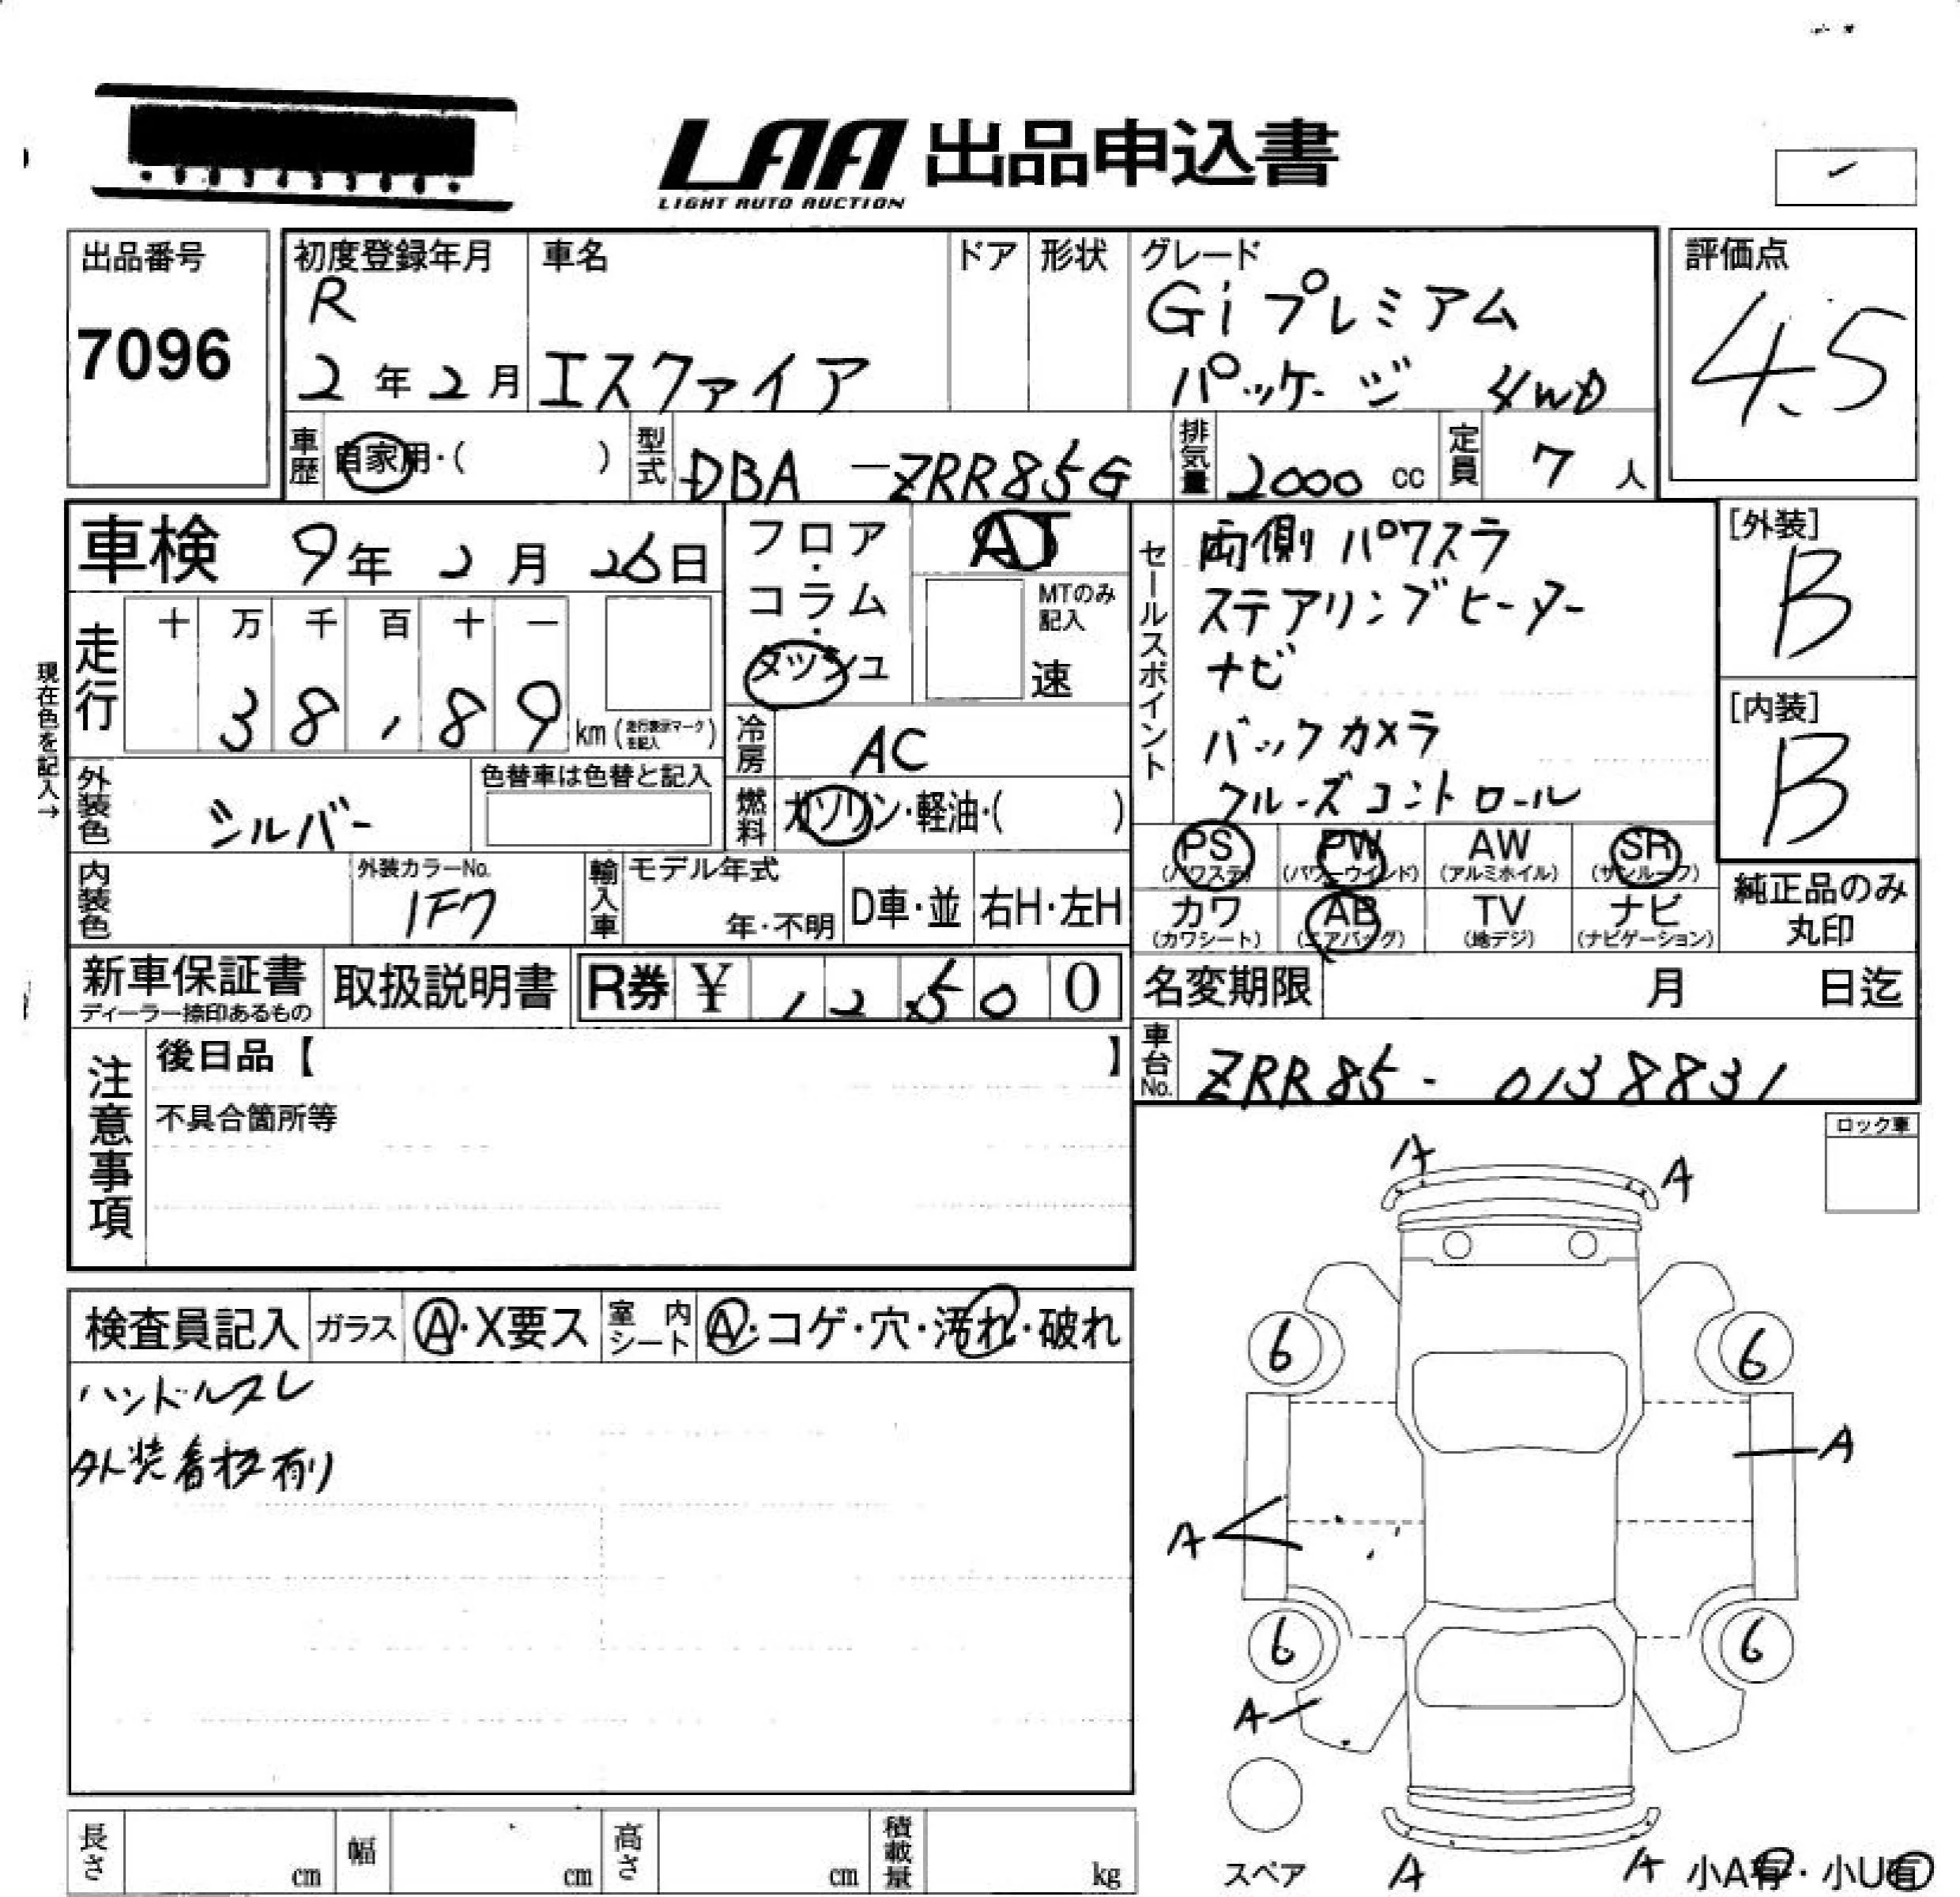 LAA 出品申込書
LIGHT AUTO AUCTION
出品番号
7096
初度登録年月
R
2年2月
車名
エスクァイア
ドア
形状
グレード
Gi プレミアム
パッケージ 4WD
評価点
4.5
車歴
自家用・( )
型式
DBA-ZRR85G
排気量
2000 cc
定員
7人
車検 9年2月26日
現在色を記入→
走行
十 万 千 百 十 一
38,89
km (走行表示マークを記入)
フロア・
コラム・
ダッシュ
AT
MTのみ
記入
速
セールスポイント
両側パワスラ
ステアリングヒーター
ナビ
バックカメラ
クルーズコントロール
[外装]
B
[内装]
B
外装色
シルバー
色替車は色替と記入
冷房
AC
燃料
ガソリン・軽油・( )
内装色
外装カラーNo.
1F7
輸入車
モデル年式
年・不明
D車・並
右H・左H
PS
(パワステ)
PW
(パワーウインド)
AW
(アルミホイル)
SR
(サンルーフ)
カワ
(カワシート)
AB
(エアバッグ)
TV
(地デジ)
ナビ
(ナビゲーション)
純正品のみ
丸印
新車保証書
ディーラー捺印あるもの
取扱説明書
R券 ¥ 12500
名変期限 月 日迄
車台No.
ZRR85-0138831
注意事項
後日品【 】
不具合箇所等
ロック車
検査員記入
ガラス
A・X要ス
室内シート
A・コゲ・穴・汚れ・破れ
ハンドルスレ
外装着板有り
A
A
6
6
A
A
6
6
A
スペア
A
A
小A有・小U有
長さ cm
幅 cm
高さ cm
積載量 kg